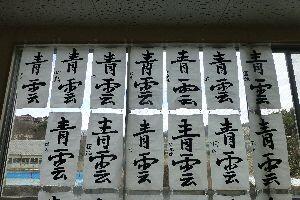 青雲
青雲
青雲
青雲
青雲
青雲
青雲
青雲
青雲
青雲
青雲
青雲
青雲